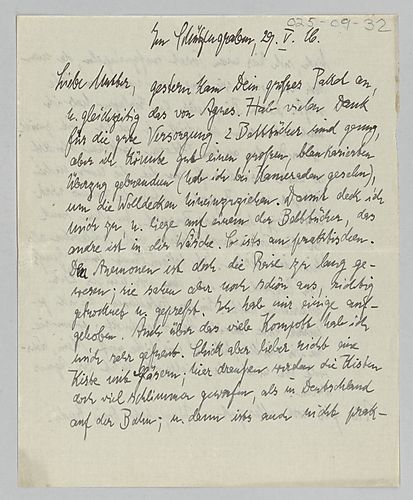 025-09-32
Im Schützengraben, 29. V. 16.
Liebe Mutter, gestern kam Dein großes Paket an,
u. gleichzeitig das von Agnes. Hab vielen Dank
für die gute Versorgung. 2 Betttücher sind genug,
aber ich könnte gut einen großen, blaukarierten
Überzug gebrauchen (hab ich bei Kameraden gesehn),
um die Wolldecken hineinzuziehen. Damit deck ich
mich zu u. liege auf einem der Betttücher, das
andre ist in der Wäsche. So ists am praktischsten.
Den Anemonen ist doch die Reise zu lang ge-
wesen; sie sahen aber noch schön aus, richtig
getrocknet u. gepreßt. Ich hab mir einige auf-
gehoben. Auch über das viele Kompott hab ich
mich sehr gefreut. Schick aber lieber nicht eine
Kiste mit Gläsern; hier draußen werden die Kisten
doch viel schlimmer geworfen, als in Deutschland
auf der Bahn; u. dann ists auch nicht prak-